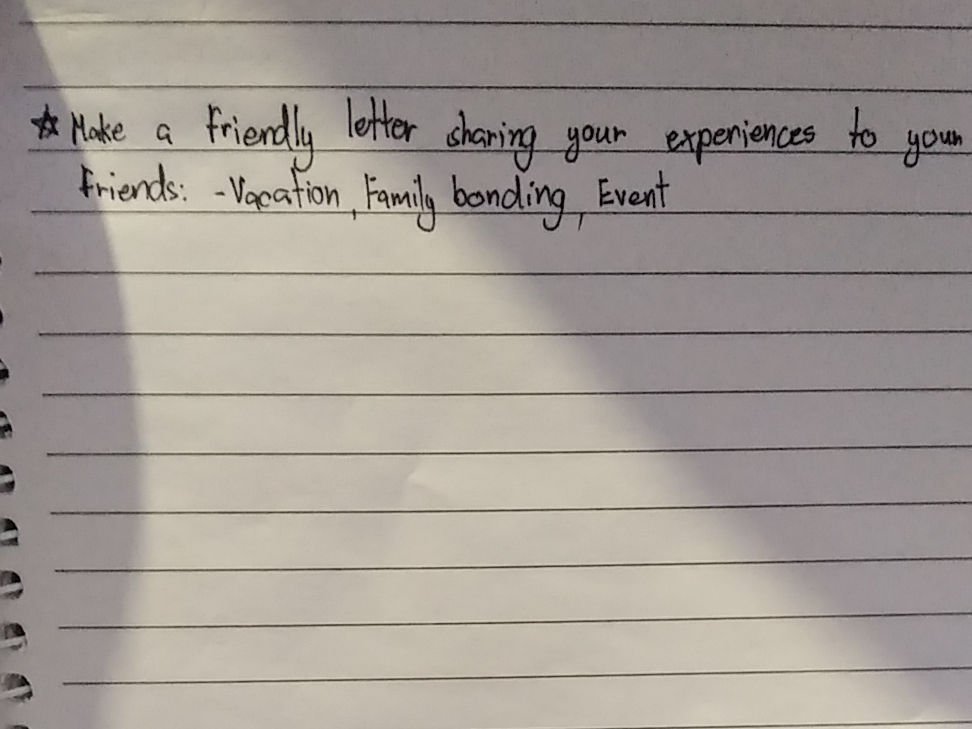 ☆ Make a friendly letter sharing your experiences to your
friends: - Vacation, Family bonding, Event